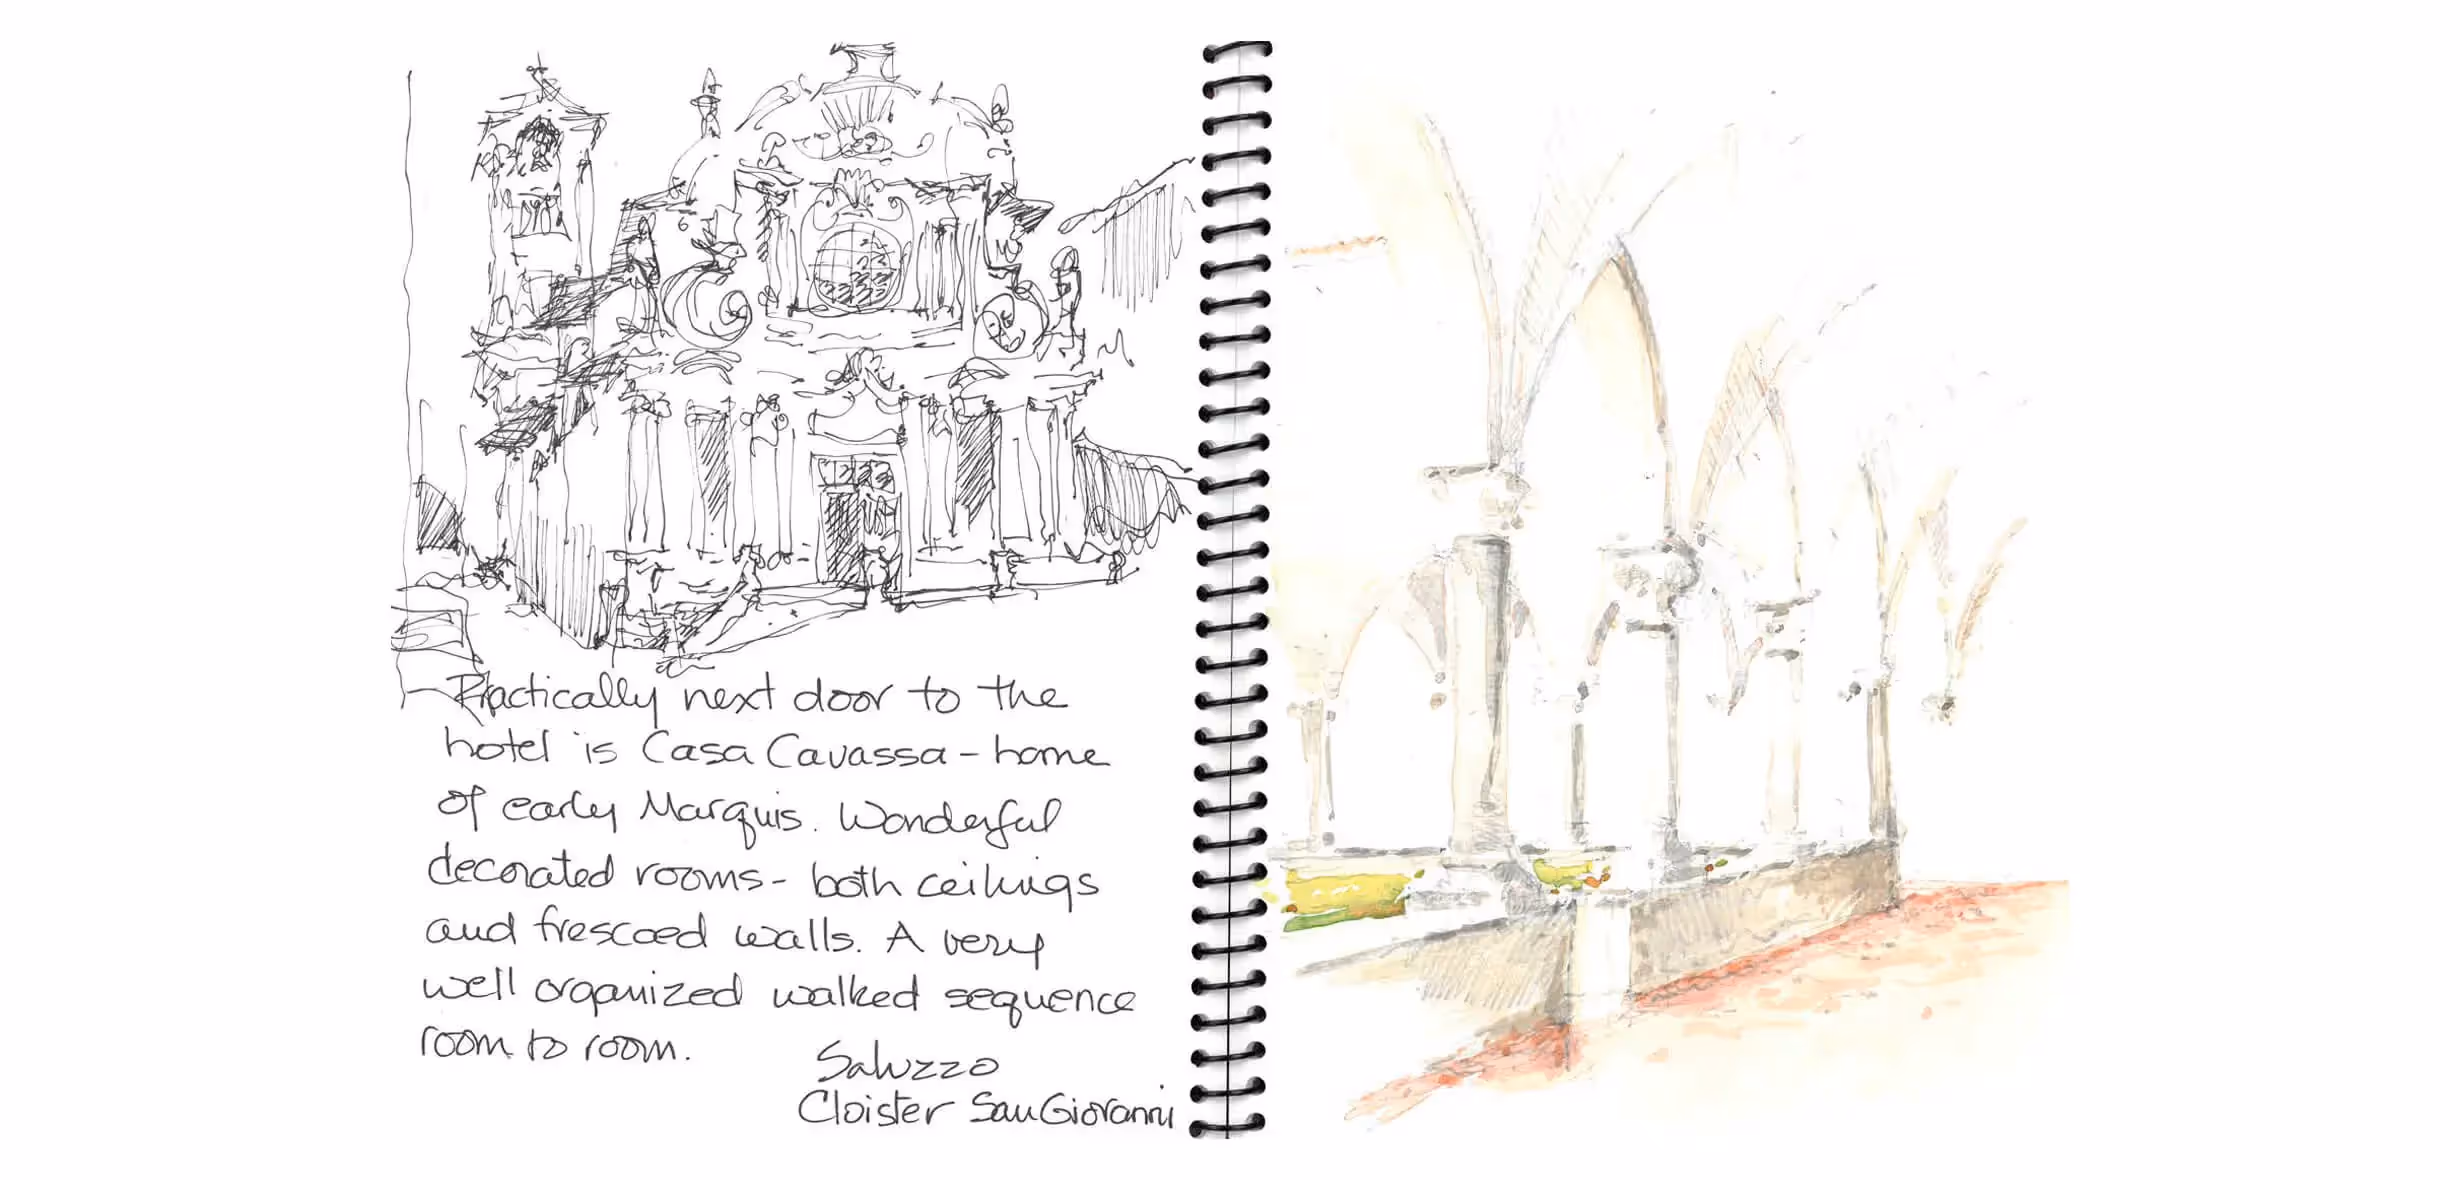 Practically next door to the
hotel is Casa Cavassa - home
of early Marquis. Wonderful
decorated rooms - both ceilings
and frescoed walls. A very
well organized walked sequence
room to room.
Saluzzo
Cloister San Giovanni